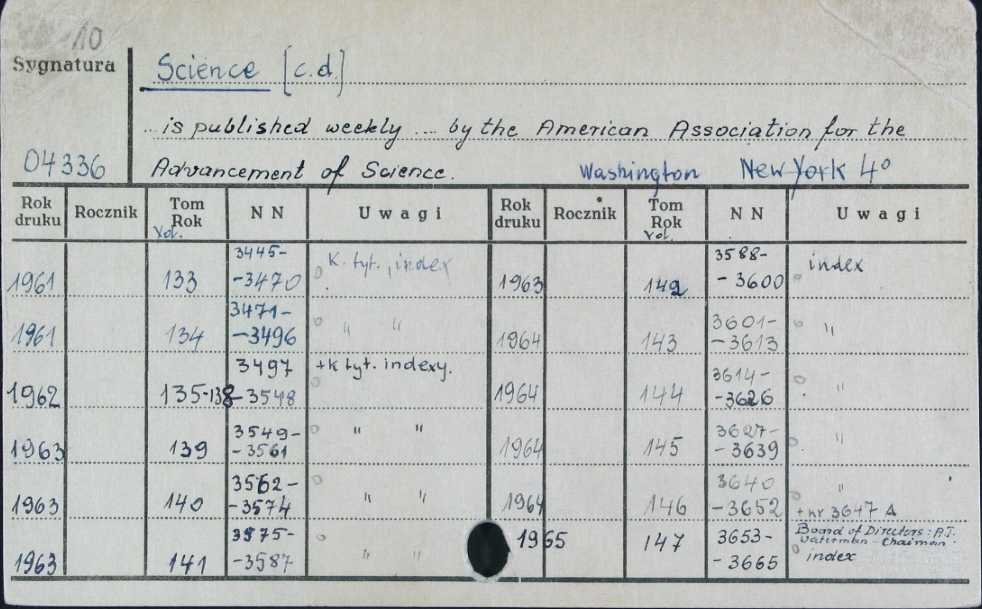 10
Sygnatura
Science [c.d.]
... is published weekly ... by the American Association for the
04336 Advancement of Science. Washington New York 4°
Rok druku Rocznik Tom Rok Vol. N N Uwagi Rok druku Rocznik Tom Rok Vol. N N Uwagi
1961 133 3445- -3470 K. tyt., index 1963 142 3588- -3600 index
1961 134 3471- -3496 " " 1964 143 3601- -3613 "
1962 135-138 3497 -3548 +k tyt. indexy. 1964 144 3614- -3626 "
1963 139 3549- -3561 " " 1964 145 3627- -3639 "
1963 140 3562- -3574 " " 1964 146 3640 -3652 " +nr 3647 A
1963 141 3575- -3587 " " 1965 147 3653- -3665 Board of Directors: A.T. Waterman - Chairman. index